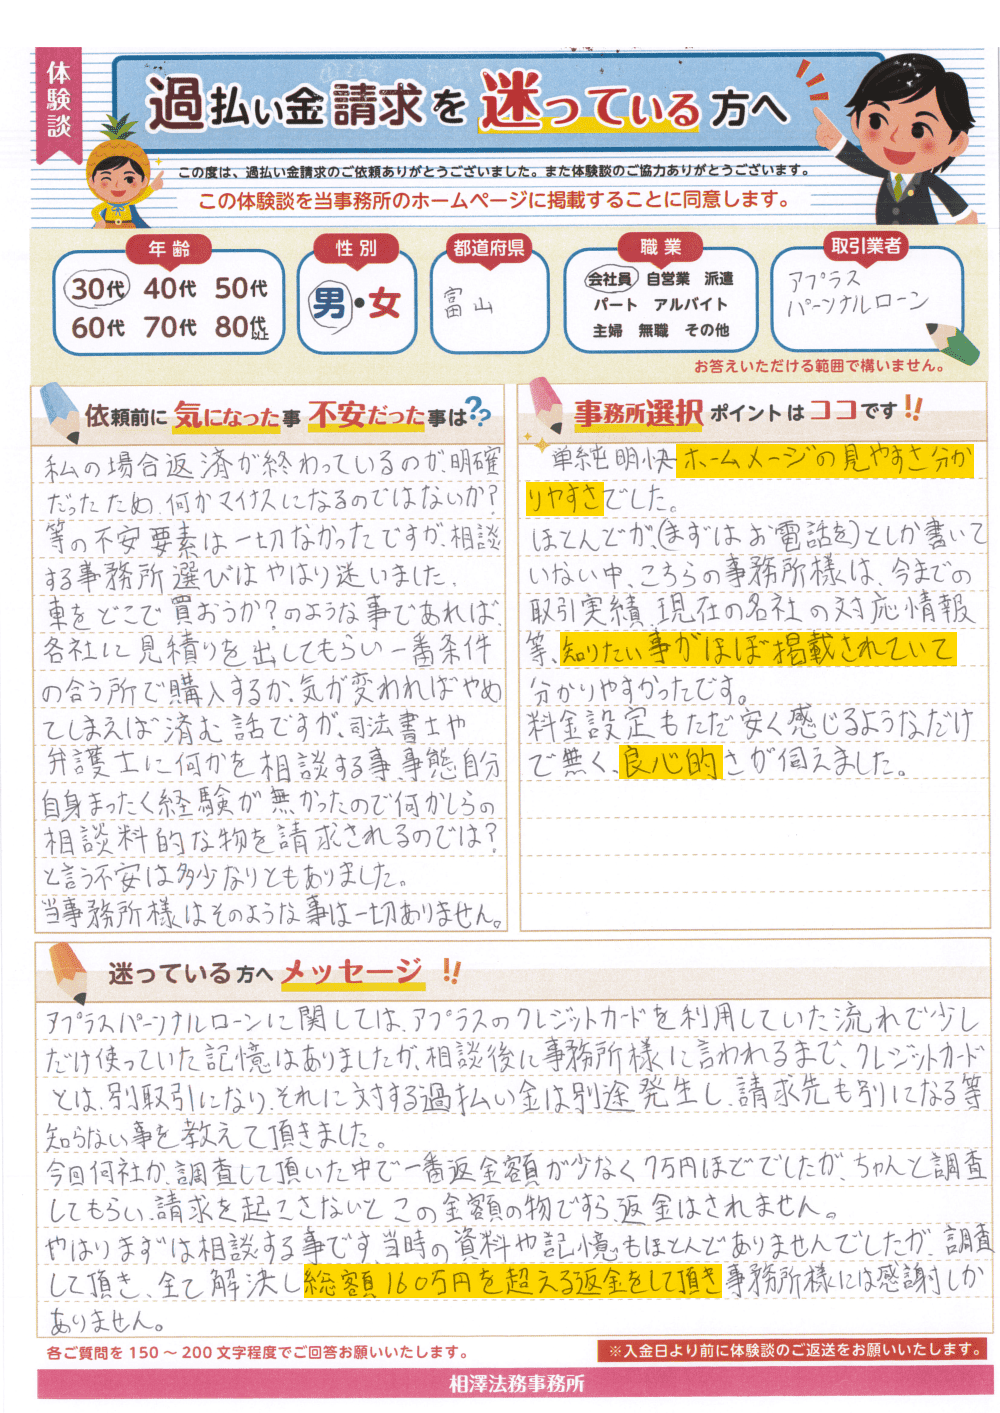 体験談
過払い金請求を迷っている方へ
この度は、過払い金請求のご依頼ありがとうございました。また体験談のご協力ありがとうございます。
この体験談を当事務所のホームページに掲載することに同意します。
年齢
30代 40代 50代
60代 70代 80代以上
性別
男・女
都道府県
富山
職業
会社員 自営業 派遣
パート アルバイト
主婦 無職 その他
取引業者
アプラス
パーソナルローン
お答えいただける範囲で構いません。
依頼前に気になった事 不安だった事は??
私の場合返済が終わっているのが、明確
だったため、何かマイナスになるのではないか?
等の不安要素は一切なかったですが、相談
する事務所選びはやはり迷いました。
車をどこで買おうか?のような事であれば、
各社に見積りを出してもらい一番条件
の合う所で購入するか、気が変わればやめ
てしまえば済む話ですが、司法書士や
弁護士に何かを相談する事、事態自分
自身まったく経験が無かったので何かしらの
相談料的な物を請求されるのでは?
と言う不安は多少なりともありました。
当事務所様はそのような事は一切ありません。
事務所選択ポイントはココです!!
単純明快ホームメージの見やすさ分か
りやすさでした。
ほとんどが、(まずはお電話を)としか書いて
いない中、こちらの事務所様は、今までの
取引実績、現在の各社の対応情報
等、知りたい事がほぼ掲載されていて
分かりやすかったです。
料金設定もただ安く感じるようなだけ
で無く、良心的さが伺えました。
迷っている方へメッセージ!!
アプラスパーソナルローンに関しては、アプラスのクレジットカードを利用していた流れで少し
だけ使っていた記憶はありましたが、相談後に事務所様に言われるまで、クレジットカード
とは、別取引になり、それに対する過払い金は別途発生し、請求先も別になる等
知らない事を教えて頂きました。
今回何社か、調査して頂いた中で一番返金金額が少なく7万円ほどでしたが、ちゃんと調査
してもらい、請求を起こさないとこの金額の物ですら、返金はされません。
やはりまずは相談する事です、当時の資料や記憶もほとんどありませんでしたが、調査
して頂き、全て解決し総額160万円を超える返金をして頂き事務所様には感謝しか
ありません。
各ご質問を150～200文字程度でご回答お願いいたします。
※入金日より前に体験談のご返送をお願いいたします。
相澤法務事務所